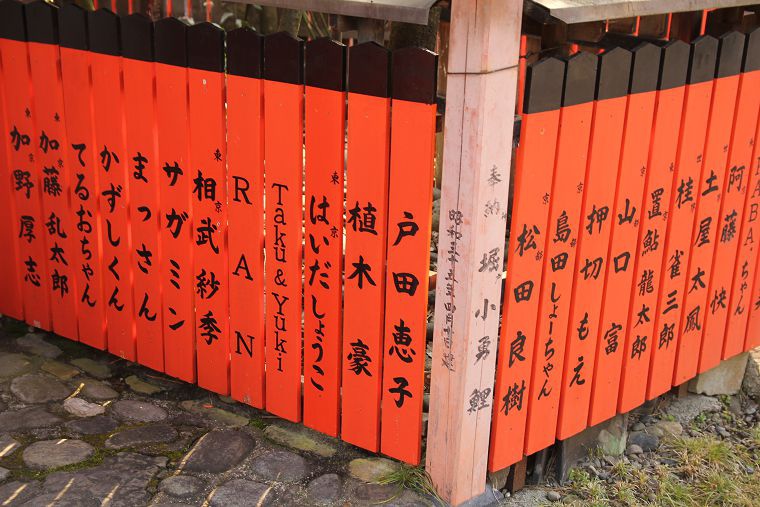 東京 加野厚志
東京 加藤乱太郎
てるおちゃん
かずしくん
まっさん
サガミン
東京 相武紗季
RAN
Taku & Yuki
東京 はいだしょうこ
植木豪
戸田恵子
奉納 堀小勇鯉
京都 松田良樹
京都 島田しょーちゃん
押切もえ
京都 山口富
置鮎龍太郎
桂雀三郎
土屋太鳳
阿藤快
BABAちゃん